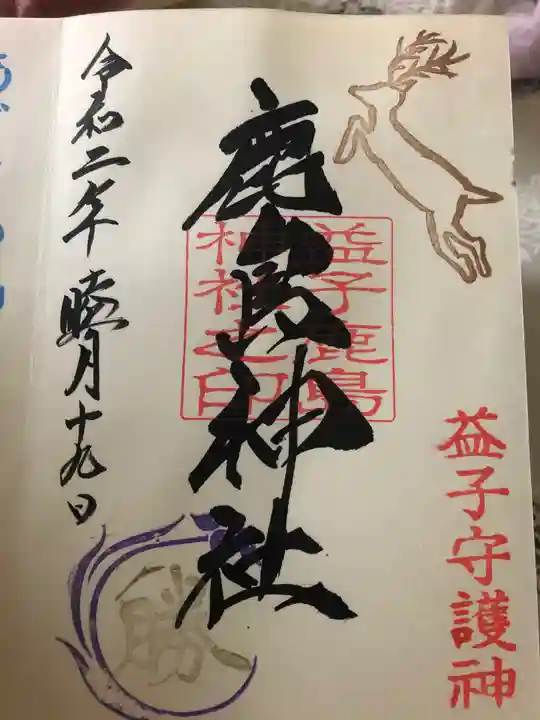 益子守護神
鹿島神社
益子鹿島
神社之印
令和二年睦月十九日
勝